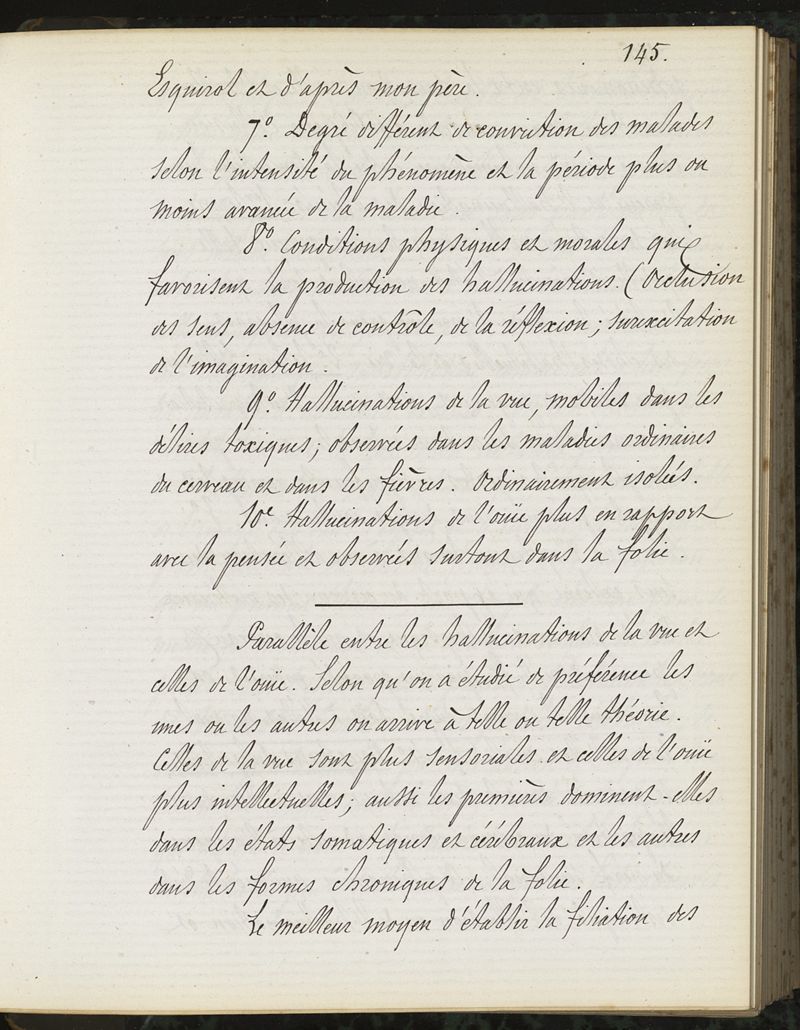 145.
Esquirol et d'après mon père.
7º. Degré différent de conviction des malades
selon l'intensité du phénomène et la période plus ou
moins avancée de la maladie.
8º. Conditions physiques et morales qui
favorisent la production des hallucinations. (Occlusion
des sens, absence de contrôle, de la réflexion; surexcitation
de l'imagination.
9º. Hallucinations de la vue, mobiles dans les
délires toxiques; observées dans les maladies ordinaires
du cerveau et dans les fièvres. Ordinairement isolées.
10e. Hallucinations de l'ouïe plus en rapport
avec la pensée et observées surtout dans la folie.
Parallèle entre les hallucinations de la vue et
celles de l'ouïe. Selon qu'on a étudié de préférence les
unes ou les autres on arrive à telle ou telle théorie.
Celles de la vue sont plus sensoriales et celles de l'ouïe
plus intellectuelles; aussi les premières dominent-elles
dans les états somatiques et cérébraux et les autres
dans les formes chroniques de la folie.
Le meilleur moyen d'établir la filiation des